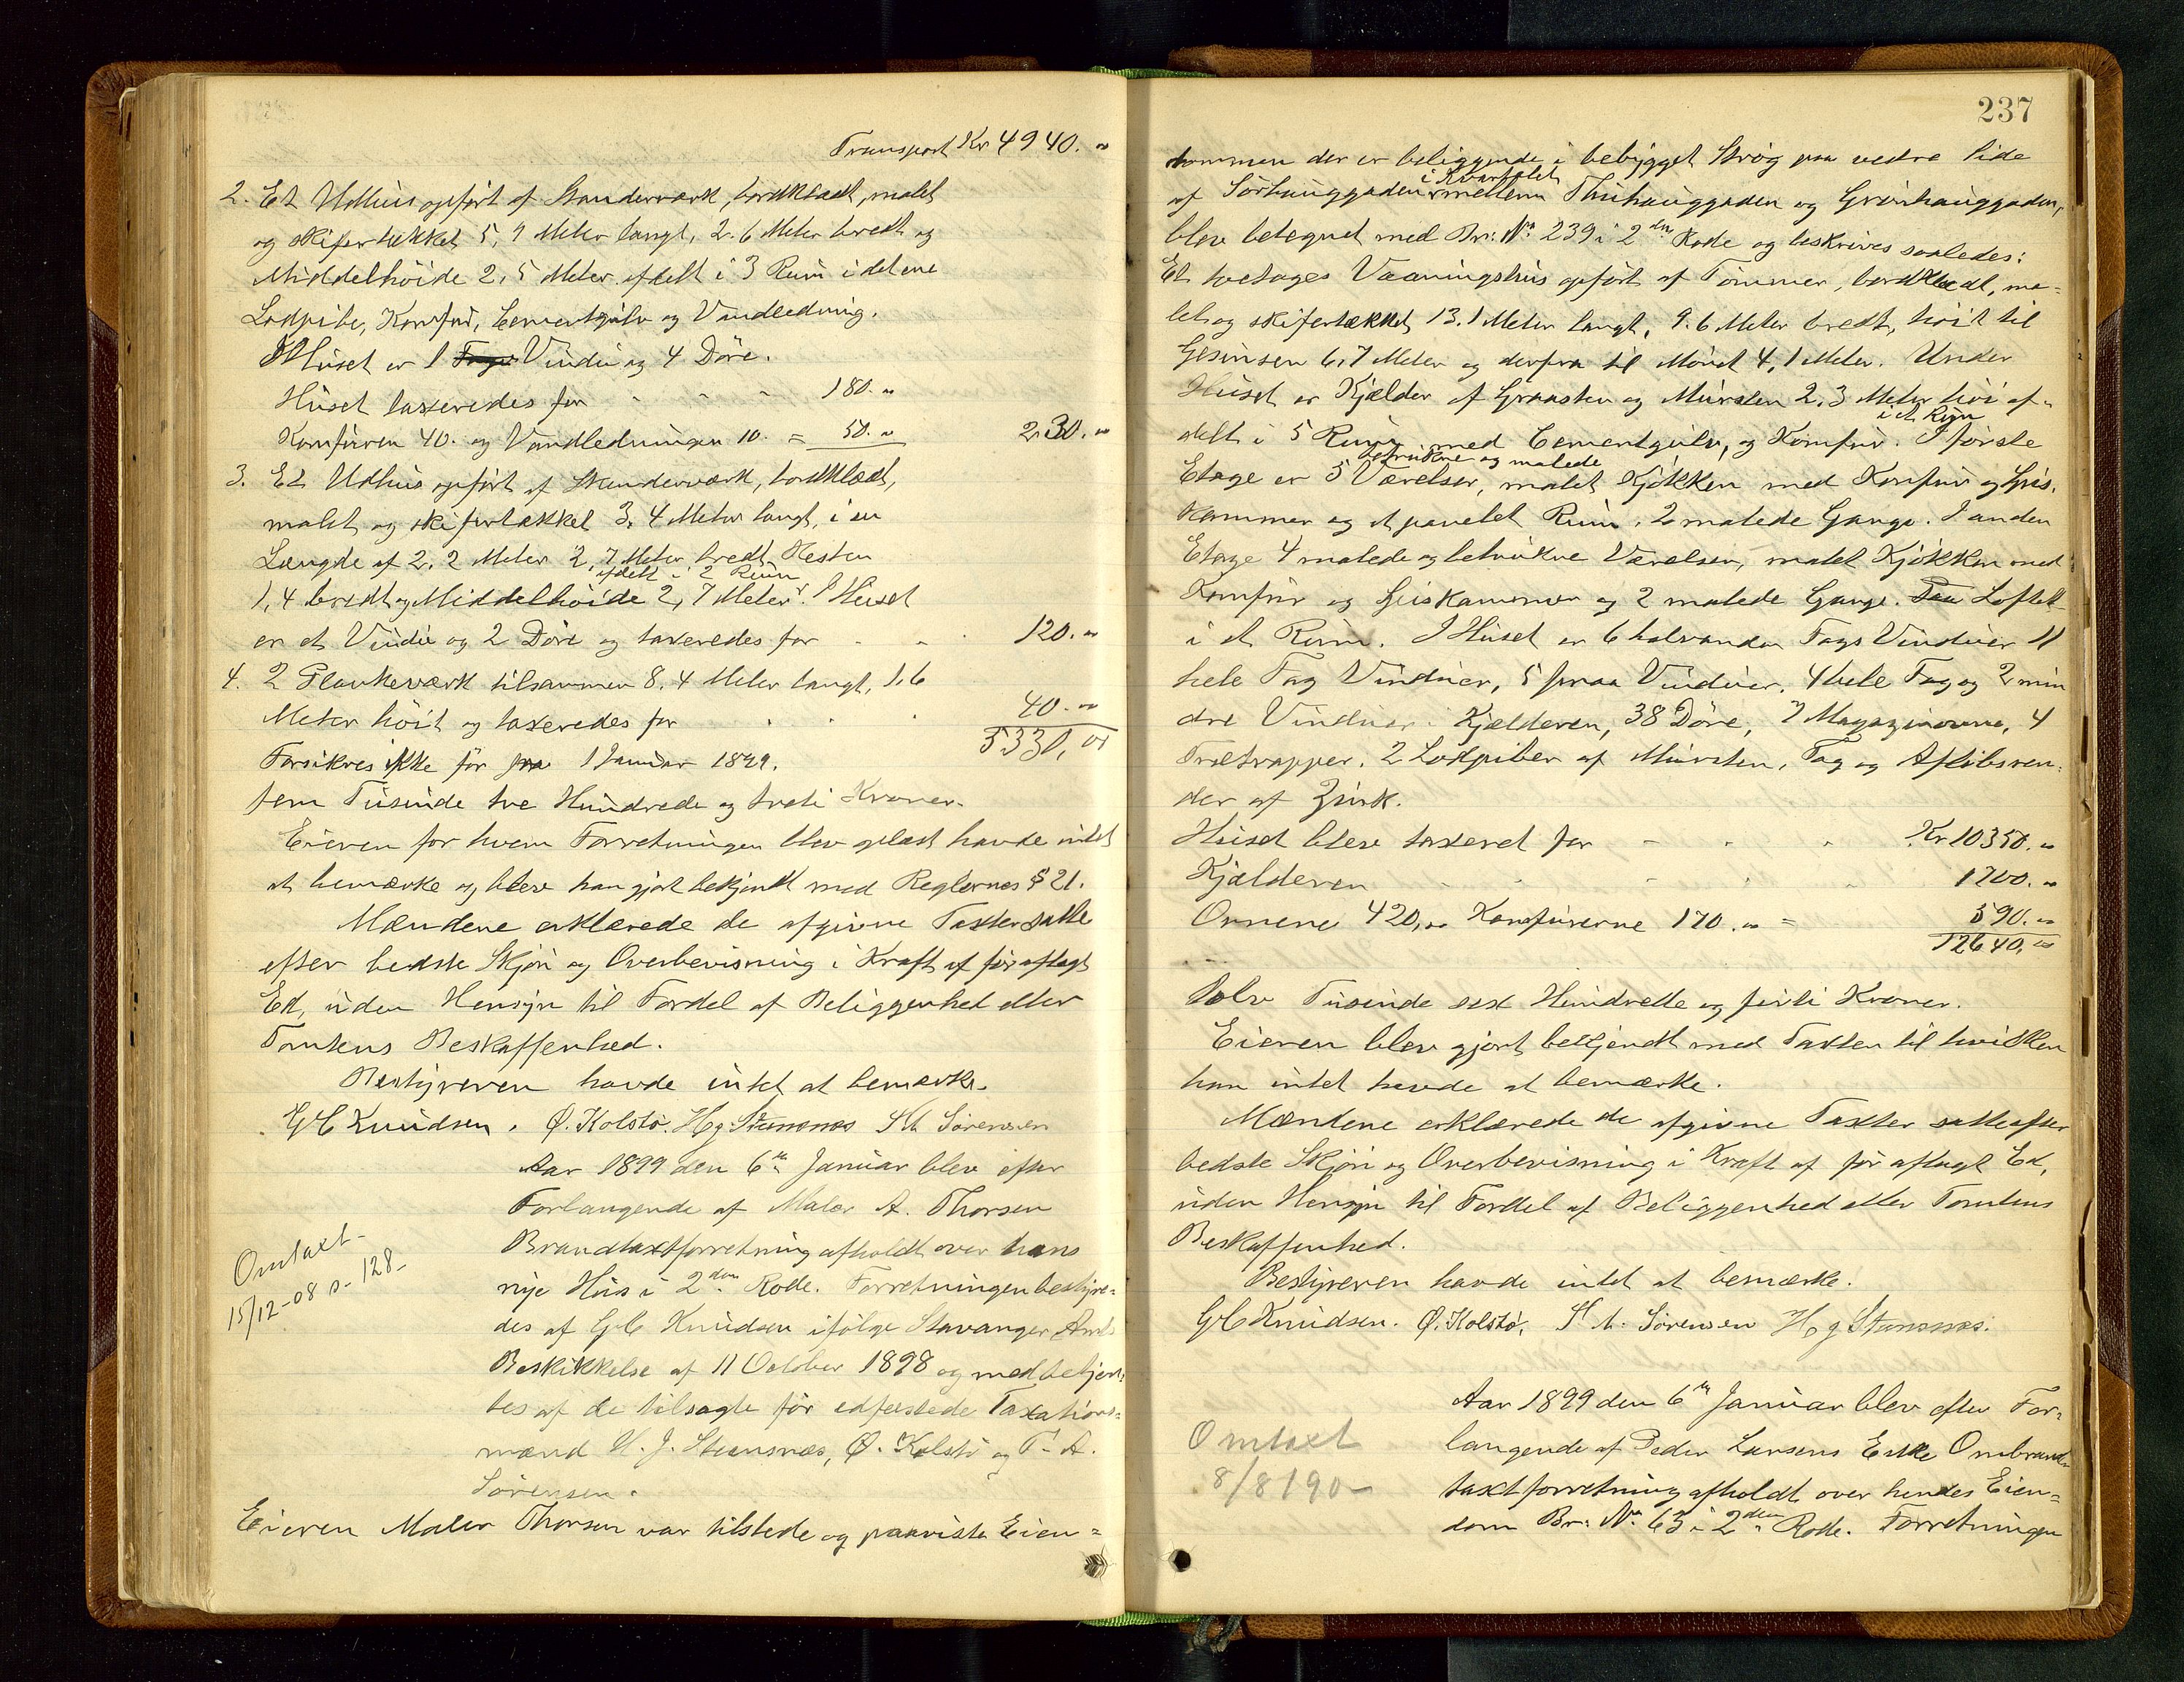 Transport Kr 4940. "
2. Et Udhus opført af Standerværk, bordklædt, malet
og skifertækket 5,9 Meter langt, 2.6 Meter bredt og
Middelhöide 2,5 Meter afdelt i 3 Rum i det ene
Lodpibe, Komfur, Cementgulv og Vandledning.
I Huset er 1 Vindu og 4 Döre.
Huset taxeredes for - - - 180. "
Komfuren 40. og Vandledningen 10. = 50. " 230. "
3. Et Udhus opført af Standerværk, bordklædt,
malet og skifertækket 3.4 Meter langt, i en
Længde af 2.2 Meter 2,7 Meter bredt Resten
afdelt i 2 Rum
1,4 bredt og Middelhöide 2,7 Meter. I Huset
er et Vindu og 2 Döre og taxeredes for - - 120. "
4. 2 Plankeværk tilsammen 8.4 Meter langt, 1.6
Meter höit og taxeredes for . . . 40. "
Forsikres ikke för 1 Januar 1899. 5330, "
fem Tusinde tre Hundrede og treti Kroner.
Eieren for hvem Forretningen blev oplæst havde intet
at bemærke og blev han gjort bekjendt med Reglernes § 21.
Mændene erklærede de afgivne Taxter satte
efter bedste Skjøn og Overbevisning i Kraft af för aflagt
Ed, uden Hensyn til Fordel af Beliggenhed eller
Tomtens Beskaffenhed.
Bestyreren havde intet at bemærke.
G C Knudsen. Ø. Kolstø. H j Stensnæs S A Sörensen
Aar 1899 den 6te Januar blev efter
Forlangende af Maler A. Thorsen
Brandtaxtforretning afholdt over hans
nye Hus i 2den Rode. Forretningen bestyre=
des af G C Knudsen ifølge Stavanger Amts
Beskikkelse af 11 October 1898 og medbetjen=
tes af de tilsagte för edfæstede Taxations=
mænd H. J. Stensnæs, Ø. Kolstø og A.
Sörensen.
Omtaxt-
15/12-08 s- 128-
Eieren Maler Thorsen var tilstede og paaviste Eien=
237
dommen der er beliggende i bebygget Strøg paa vestre Side
i Kvartalet
af Sörhauggaden mellem Thuhauggaden og Grönhauggaden,
blev betegnet med Br: No 239 i 2den Rode og beskrives saaledes:
Et toetages Vaaningshus opført af Tömmer, bordklædt, ma=
let og skifertækket 13.1 Meter langt, 9.6 Meter bredt, höit til
Gesimsen 6,7 Meter og derfra til Mönet 4,1 Meter. Under
Huset er Kjælder af Graasten og Mursten 2.3 Meter höi af=
i et Rum
delt i 5 Rum med Cementgulv, og Komfur. I förste
betrukne og malede
Etage er 5 Værelser, malet Kjökken med Komfur og Spis.
kammer og et panelet Rum, 2 malede Gange. I anden
Etage 4 malede og betrukne Værelser, malet Kjökken med
Komfur og Spiskammer og 2 malede Gange. Loftet
i et Rum. I Huset er 6 halvanden Fags Vinduer 11
hele Fag Vinduer, 5 smaa Vinduer. 4 hele Fag og 2 min
dre Vinduer i Kjælderen, 38 Döre, 7 Magazinovne, 4
Trætrapper. 2 Lodpiber af Mursten, Tag og Aflöbsren=
der af Zink.
Huset blev taxeret for - - - Kr 10350. "
Kjælderen - - - - 1700. "
Ovnene 420, " Komfurerne 170. " = 590. "
12640, "
Tolv Tusinde sex Hundrede og firti Kroner.
Eieren blev gjort bekjendt med Taxten til hvilken
han intet havde at bemærke.
Mændene erklærede de afgivne Taxter satte efter
bedste Skjøn og Overbevisning i Kraft af för aflagt Ed,
uden Hensyn til Fordel af Beliggenhed eller Tomtens
Beskaffenhed.
Bestyreren havde intet at bemærke.
G C Knudsen. Ø. Kolstø, S A. Sörensen H j Stensnæs.
Aar 1899 den 6te Januar blev efter For=
langende af Peder Larsens Enke Ombrand=
taxtforretning afholdt over hendes Eien=
dom Br: No 63 i 2den Rode. Forretningen
Omtaxt
8/8 190-